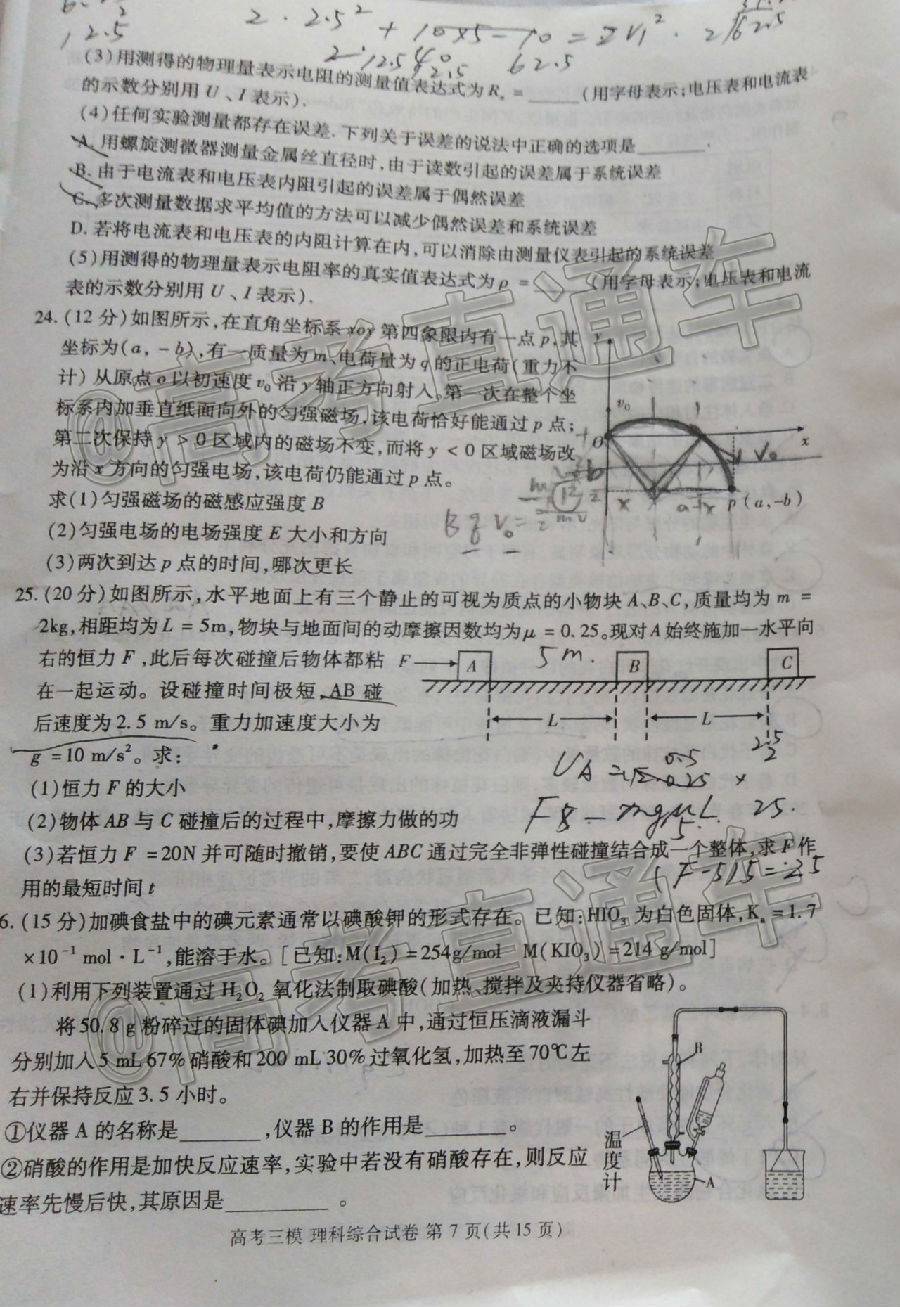 12.5
2·2.5²
+10×5-10=2V₁²·
62.5
(3)用测得的物理量表示电阻的测量值表达式为Rₓ=____(用字母表示;电压表和电流表
的示数分别用U、I表示).
(4)任何实验测量都存在误差.下列关于误差的说法中正确的选项是______.
A.用螺旋测微器测量金属丝直径时,由于读数引起的误差属于系统误差
B.由于电流表和电压表内阻引起的误差属于偶然误差
C.多次测量数据求平均值的方法可以减少偶然误差和系统误差
D.若将电流表和电压表的内阻计算在内,可以消除由测量仪表引起的系统误差
(5)用测得的物理量表示电阻率的真实值表达式为ρ=____(用字母表示;电压表和电流
表的示数分别用U、I表示).
24.(12分)如图所示,在直角坐标系xoy第四象限内有一点p,其
坐标为(a,-b),有一质量为m、电荷量为q的正电荷(重力不
计)从原点o以初速度v₀沿y轴正方向射入,第一次在整个坐
标系内加垂直纸面向外的匀强磁场,该电荷恰好能通过p点;
第二次保持y>0区域内的磁场不变,而将y<0区域磁场改
为沿x方向的匀强电场,该电荷仍能通过p点。
求(1)匀强磁场的磁感应强度B
(2)匀强电场的电场强度E大小和方向
(3)两次到达p点的时间,哪次更长
y
v₀
O
x
V₀
b
x
a-x
P(a,-b)
BqV₀=
25.(20分)如图所示,水平地面上有三个静止的可视为质点的小物块A、B、C,质量均为m=
2kg,相距均为L=5m,物块与地面间的动摩擦因数均为μ=0.25。现对A始终施加一水平向
右的恒力F,此后每次碰撞后物体都粘
在一起运动。设碰撞时间极短,AB碰
后速度为2.5 m/s。重力加速度大小为
g=10 m/s²。求:
F A 5m. B C
L L
(1)恒力F的大小
(2)物体AB与C碰撞后的过程中,摩擦力做的功
(3)若恒力F=20N并可随时撤销,要使ABC通过完全非弹性碰撞结合成一个整体,求F作
用的最短时间t
6.(15分)加碘食盐中的碘元素通常以碘酸钾的形式存在。已知:HIO₃为白色固体,Kₐ=1.7
×10⁻¹ mol·L⁻¹,能溶于水。[已知:M(I₂)=254g/mol M(KIO₃)=214 g/mol]
(1)利用下列装置通过H₂O₂氧化法制取碘酸(加热、搅拌及夹持仪器省略)。
将50.8g粉碎过的固体碘加入仪器A中,通过恒压滴液漏斗
分别加入5 mL67%硝酸和200 mL30%过氧化氢,加热至70℃左
右并保持反应3.5小时。
①仪器A的名称是______,仪器B的作用是______。
②硝酸的作用是加快反应速率,实验中若没有硝酸存在,则反应
速率先慢后快,其原因是________。
B
温度计
A
高考三模 理科综合试卷 第7页(共15页)
@高考直通车
@高考直通车